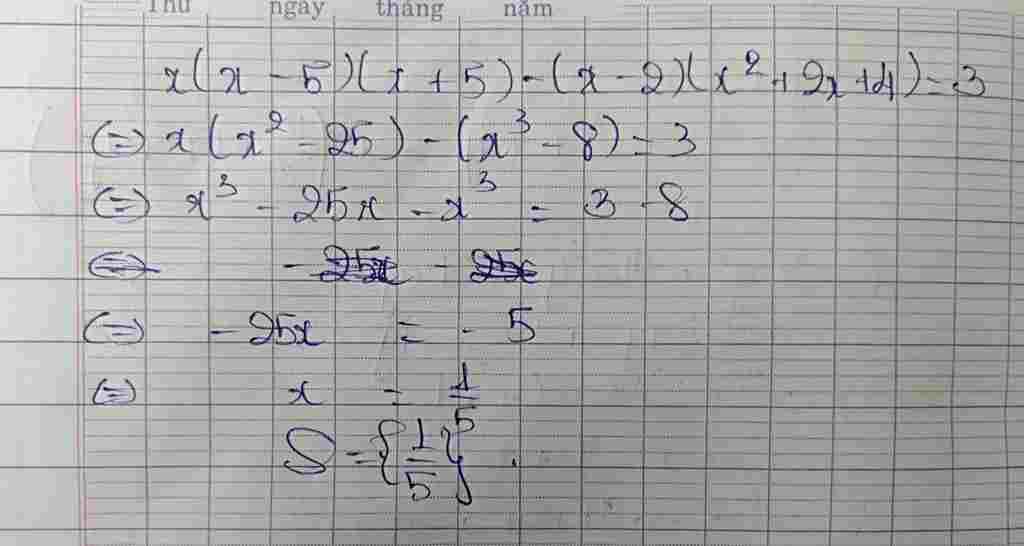 Thứ ngày tháng năm
x(x - 5)(x + 5) - (x - 2)(x² + 2x + 4) = 3
(=) x(x² - 25) - (x³ - 8) = 3
(=) x³ - 25x - x³ = 3 - 8
(=) - 25x - 25x
(=) - 25x = - 5
(=) x = 1/5
S = {1/5}.